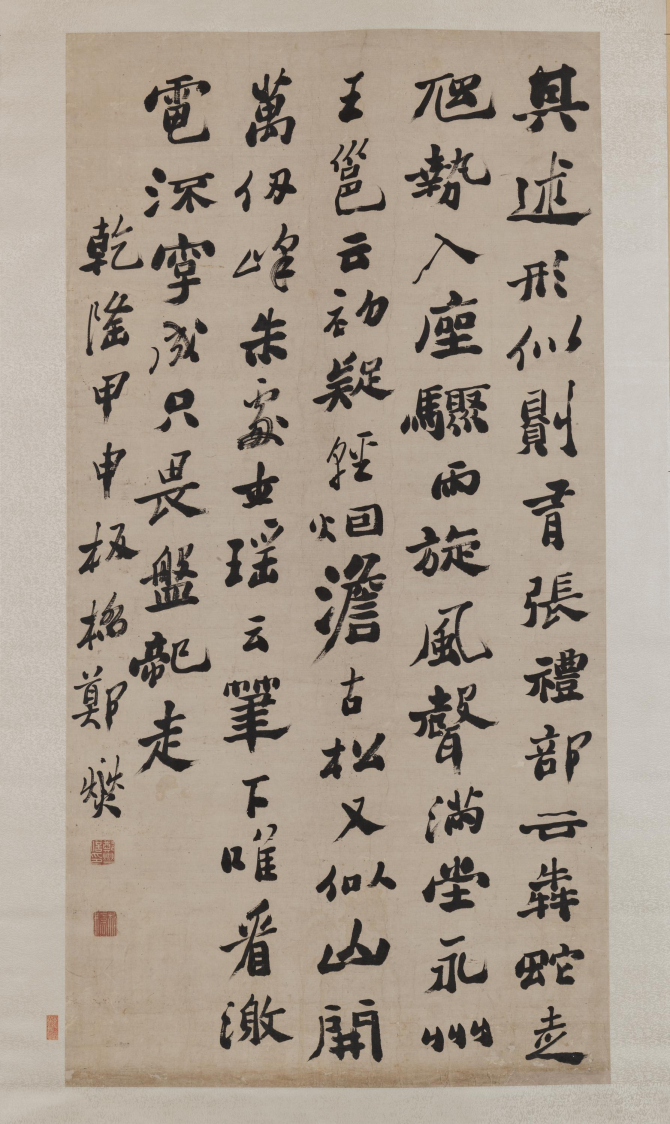 其述形似則有張禮部云犇蛇走
虺勢入座驟雨旋風聲滿堂永州
王邕云初疑輕烟澹古松又似山開
萬仞峰朱處士瑤云筆下唯看激
電流字成只畏盤龍走
乾隆甲申板橋鄭燮